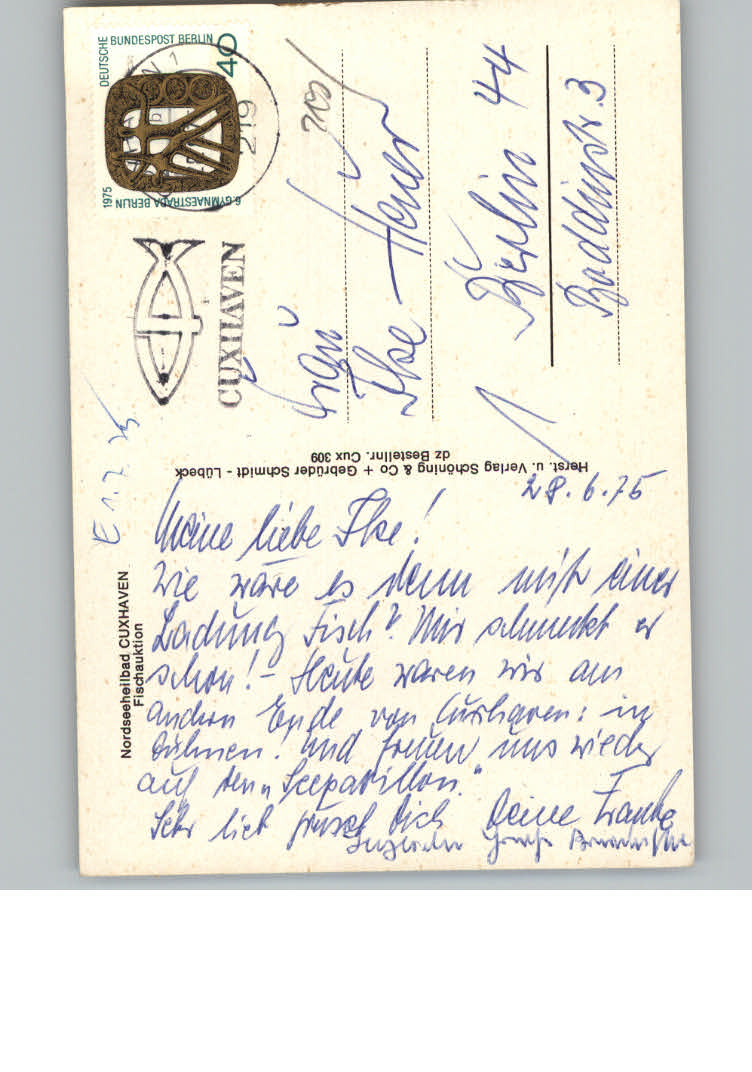 DEUTSCHE BUNDESPOST BERLIN
40
1975
6. GYMNAESTRADA BERLIN
219
CUXHAVEN
Frau
Ilse Heuer
1 Berlin 44
Boddinstr. 3
Herst. u. Verlag Schöning & Co + Gebrüder Schmidt - Lübeck
dz Bestellnr. Cux 309
E 1.7.75
Nordseeheilbad CUXHAVEN
Fischauktion
28.6.75
Meine liebe Ilse!
Wie wäre es denn mit einer
Ladung Fisch? Mir schmeckt er
schon! - Heute waren wir am
andern Ende von Cuxhaven: in
Duhnen! Und freuen uns wieder
auf den "Seepavillon."
Sehr lieb grüsst Dich Deine